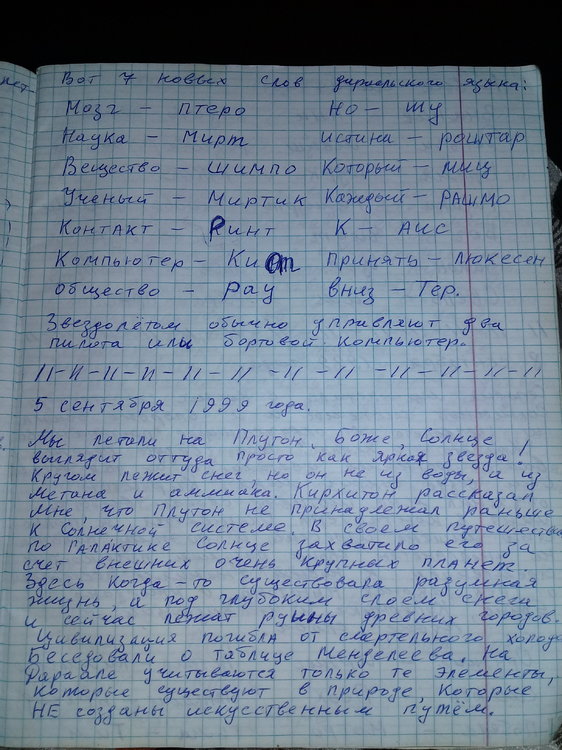 Вот 7 новых слов дираельского языка:
Мозг – птеро но – шу
Наука – Мирт истина – роштар
Вещество – шимпо Который – миц
Ученый – Миртик Каждый – РАШМО
Контакт – Ринт К – Аис
Компьютер – принять – люкесен
общество – рау вниз – Тер.
Звездолётом обычно управляют два
пилота или бортовой компьютер.
5 сентября 1999 года.
Мы летали на Плутон. Боже, Солнце
выглядит оттуда просто как яркая звезда!
Кругом лежит снег, но он не из воды, а из
метана и аммиака. Кирхитон рассказал
мне, что Плутон не принадлежал раньше
к Солнечной системе. В своем путешестви
по Галактике Солнце захватило его за
счет внешних очень крупных планет.
Здесь когда-то существовала разумная
жизнь, а под глубоким слоем снега
и сейчас лежат руины древних городов.
Цивилизация погибла от смертельного холода
Беседовали о таблице Менделеева. На
учитываются только те элементы,
которые существуют в природе, которые
НЕ созданы искусственным путём.